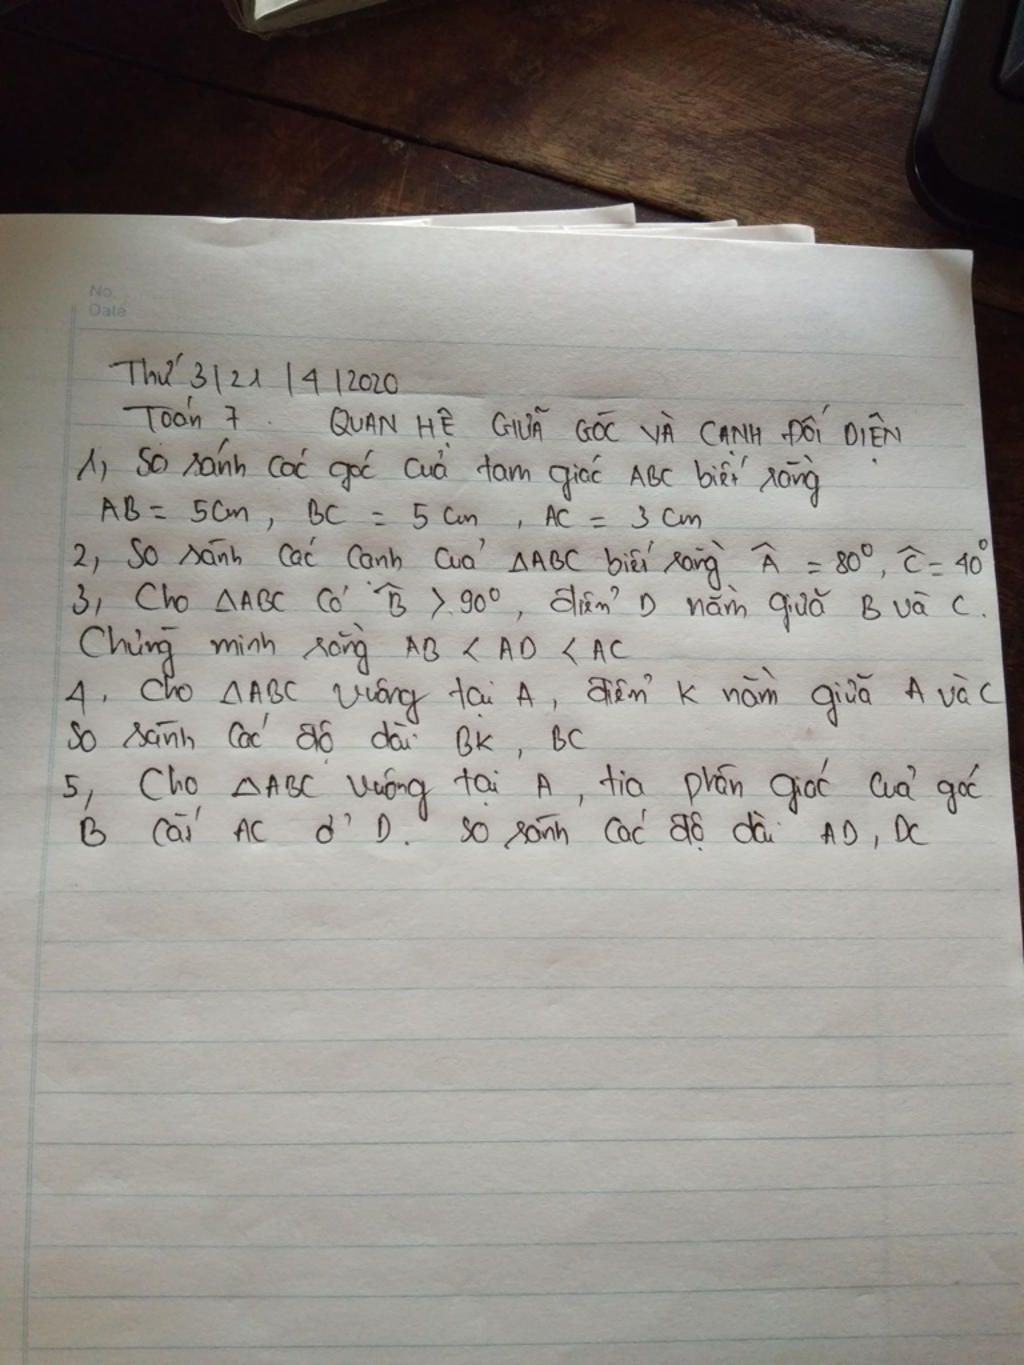 No.
Date
Thứ 3|21|4|2020
Toán 7. QUAN HỆ GIỮA GÓC VÀ CẠNH ĐỐI DIỆN
1, So sánh các góc của tam giác ABC biết rằng
AB = 5cm, BC = 5cm, AC = 3cm
2, So sánh các cạnh của ΔABC biết rằng Â = 80°, Ĉ = 40°
3, Cho ΔABC có B̂ > 90°, điểm D nằm giữa B và C.
Chứng minh rằng AB < AD < AC
4, Cho ΔABC vuông tại A, điểm K nằm giữa A và C
So sánh các độ dài BK, BC
5, Cho ΔABC vuông tại A, tia phân giác của góc
B cắt AC ở D. So sánh các độ dài AD, DC